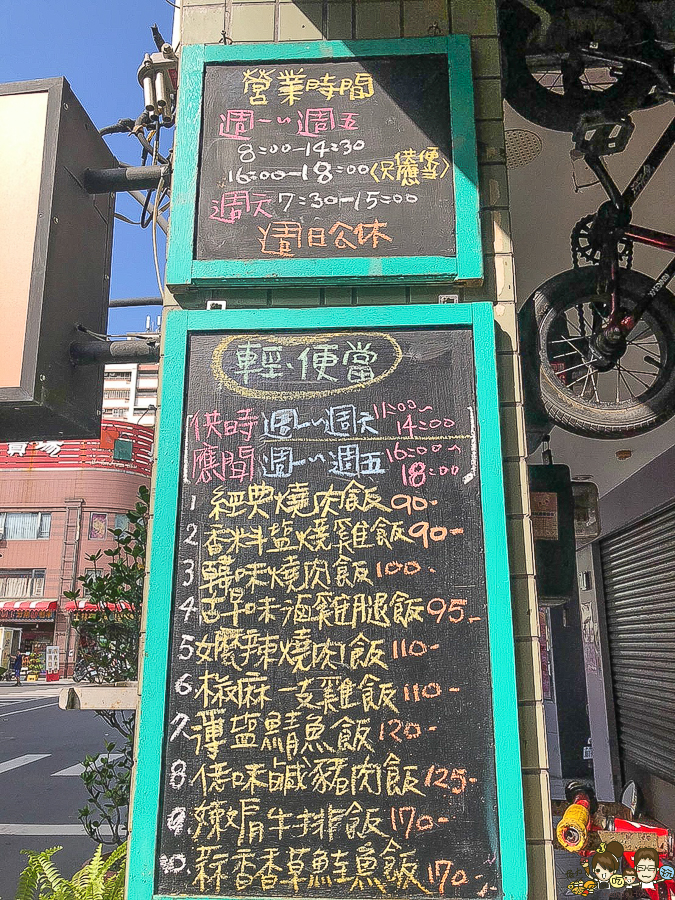 營業時間
週一~週五
8:00-14:30
16:00-18:00(只供應便當)
週六7:30-15:00
週日公休
輕便當
供應時間
週一~週六11:00~14:00
週一~週五16:00~18:00
1 經典燒肉飯90-
2 香料塩燒雞飯90-
3 韓味燒肉飯100-
4 古早味滷雞腿飯95-
5 麻辣燒肉飯110-
6 椒麻一支雞飯110-
7 薄塩鯖魚飯120-
8 倍味鹹豬肉飯125-
9. 嫩肩牛排飯170-
10. 蒜香香草鮭魚飯170-